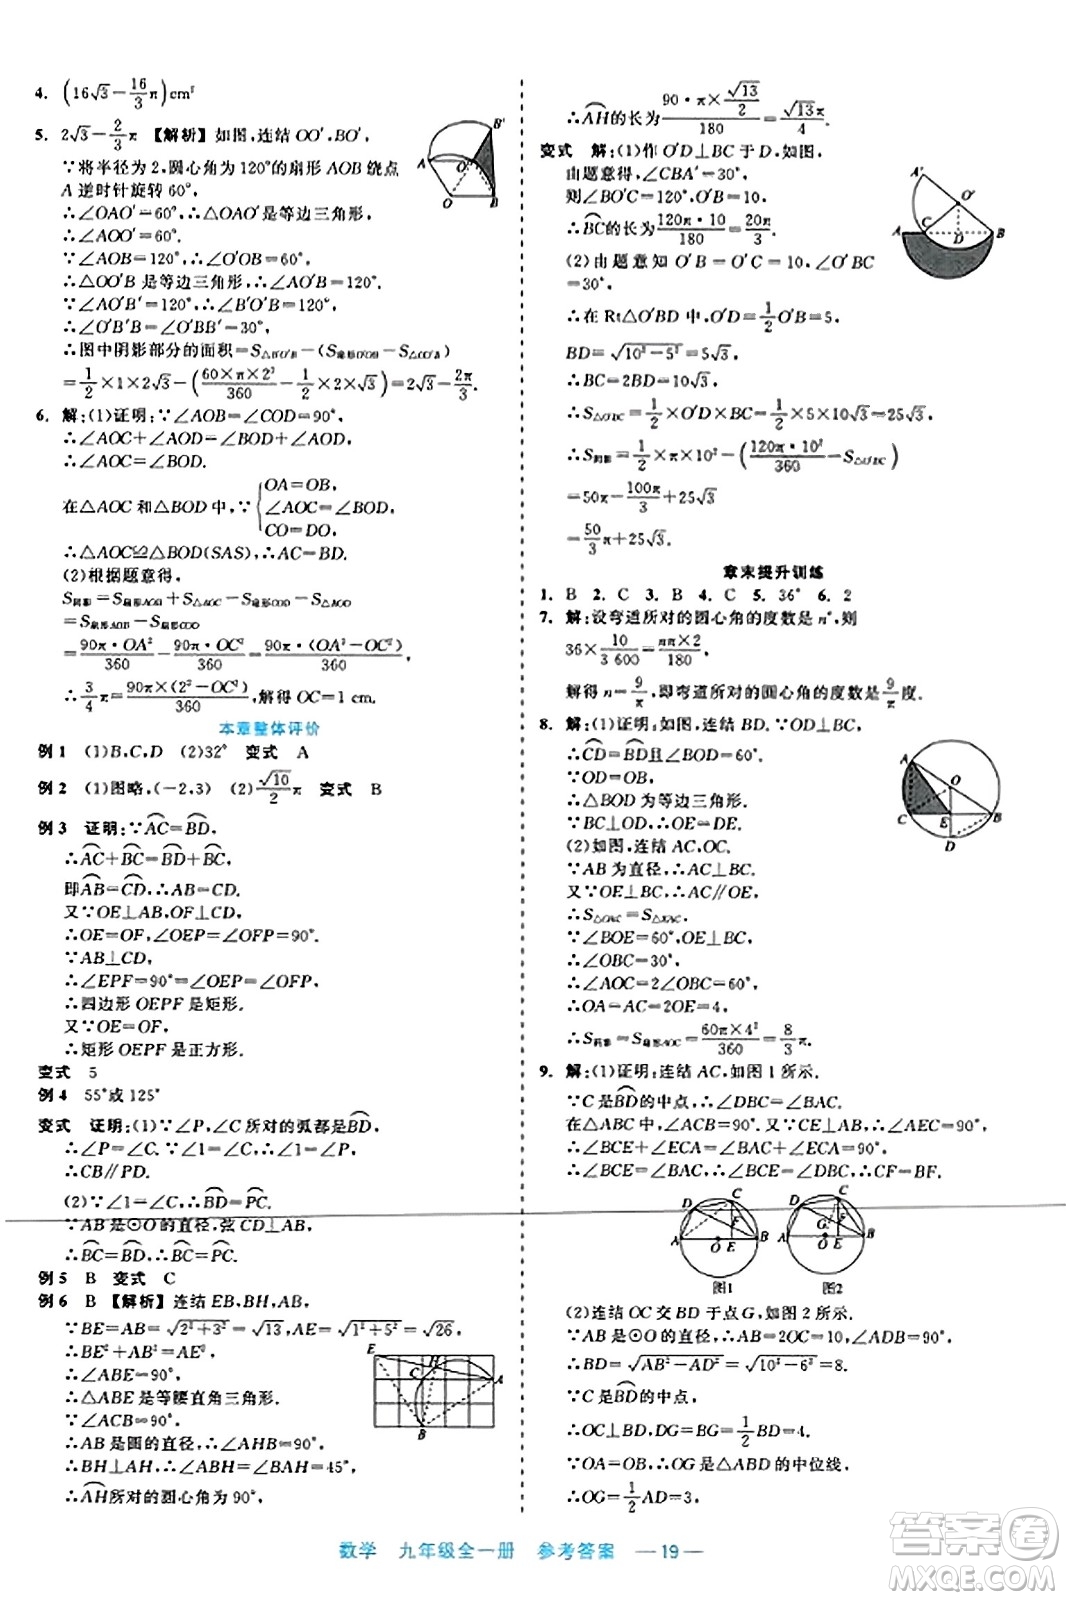 4. (16√3−16/3π)cm²
5. 2√3−2/3π 【解析】如图,连结OO′,BO′,
∵将半径为2,圆心角为120°的扇形AOB绕点
A逆时针旋转60°,
∴∠OAO′=60°,∴△OAO′是等边三角形,
∴∠AOO′=60°.
∵∠AOB=120°,∴∠O′OB=60°,
∴△OO′B是等边三角形,∴∠AO′B=120°.
∵∠AO′B′=120°,∴∠B′O′B=120°,
∴∠O′B′B=∠O′BB′=30°,
∴图中阴影部分的面积=S△B′O′B−(S扇形O′OB−S△OO′B)
=1/2×1×2√3−(60×π×2²/360−1/2×2×√3)=2√3−2π/3.
6. 解:(1)证明:∵∠AOB=∠COD=90°,
∴∠AOC+∠AOD=∠BOD+∠AOD,
∴∠AOC=∠BOD.
在△AOC和△BOD中,∵{OA=OB, ∠AOC=∠BOD, CO=DO.
∴△AOC≌△BOD(SAS),∴AC=BD.
(2)根据题意得,
S阴影=S扇形AOB+S△AOC−S扇形COD−S△BOD=
S扇形AOB−S扇形COD
=90π·OA²/360−90π·OC²/360=90π·(OA²−OC²)/360
∴3/4π=90π×(2²−OC²)/360,解得OC=1 cm.
本章整体评价
例1 (1)B,C,D (2)32° 变式 A
例2 (1)图略,(−2,3) (2)√10/2π 变式 B
例3 证明:∵AC⌒=BD⌒,
∴AC⌒+BC⌒=BD⌒+BC⌒,
即AB⌒=CD⌒,∴AB=CD.
又∵OE⊥AB,OF⊥CD,
∴OE=OF,∠OEP=∠OFP=90°.
∵AB⊥CD,
∴∠EPF=90°=∠OEP=∠OFP,
∴四边形OEPF是矩形.
又∵OE=OF,
∴矩形OEPF是正方形.
变式 5
例4 55°或125°
变式 证明:(1)∵∠P,∠C所对的弧都是BD⌒,
∴∠P=∠C.∵∠1=∠C,∴∠1=∠P,
∴CB∥PD.
(2)∵∠1=∠C,∴BD⌒=PC⌒.
∵AB是⊙O的直径,弦CD⊥AB,
∴BC⌒=BD⌒,∴BC⌒=PC⌒.
例5 B 变式 C
例6 B 【解析】连结EB,BH,AB,
∵BE=AB=√2²+3²=√13,AE=√1²+5²=√26,
∴BE²+AB²=AE²,
∴∠ABE=90°,
∴△ABE是等腰直角三角形.
∵∠ACB=90°,
∴AB是圆的直径,∴∠AHB=90°,
∴BH⊥AH,∴∠ABH=∠BAH=45°,
∴AH⌒所对的圆心角为90°,
∴AH⌒的长为90·π×√13/2/180=√13π/4.
变式 解:(1)作O′D⊥BC于D,如图,
由题意得,∠CBA′=30°,
则∠BO′C=120°,O′B=10,
∴BC⌒的长为120π·10/180=20π/3.
(2)由题意知O′B=10,∠O′BC
=30°,
∴在Rt△O′BD中,O′D=1/2O′B=5,
BD=√10²−5²=5√3,
∴BC=2BD=10√3,
∴S△O′BC=1/2×O′D×BC=1/2×5×10√3=25√3,
∴S阴影=1/2×π×10²−(120π·10²/360−S△O′BC)
=50π−100π/3+25√3
=50/3π+25√3.
章末提升训练
1. B 2. C 3. B 4. C 5. 36° 6. 2
7. 解:设弯道所对的圆心角的度数是n°,则
36×10/3 600=nπ×2/180,
解得n=9/π,即弯道所对的圆心角的度数是9/π度.
8. 解:(1)证明:如图,连结BD.∵OD⊥BC,
∴CD⌒=BD⌒且∠BOD=60°.
∵OD=OB,
∴△BOD为等边三角形.
∵BC⊥OD,∴OE=DE.
(2)如图,连结AC,OC.
∵AB为直径,∴∠ACB=90°.
又∵OE⊥BC,∴AC∥OE,
∴S△OAC=S△EAC.
∵∠BOE=60°,OE⊥BC,
∴∠OBC=30°,
∴∠AOC=2∠OBC=60°,
∴OA=AC=2OE=4,
∴S阴影=S扇形AOC=60π×4²/360=8/3π.
9. 解:(1)证明:连结AC,如图1所示.
∵C是BD⌒的中点,∴∠DBC=∠BAC.
在△ABC中,∠ACB=90°,CE⊥AB,
∴∠BCE+∠ECA=∠BAC+∠ECA=90°,
∴∠BCE=∠BAC,∴∠BCE=∠DBC,∴CF=BF.
图1 图2
(2)连结OC交BD于点G,如图2所示.
∵AB是⊙O的直径,AB=2OC=10,∠ADB=90°,
∴BD=√AB²−AD²=√10²−6²=8.
∵C是BD⌒的中点,
∴OC⊥BD,DG=BG=1/2BD=4.
∵OA=OB,∴OG是△ABD的中位线,
∴OG=1/2AD=3,
数学 九年级全一册 参考答案 —19—
答案卷
MXQE.COM